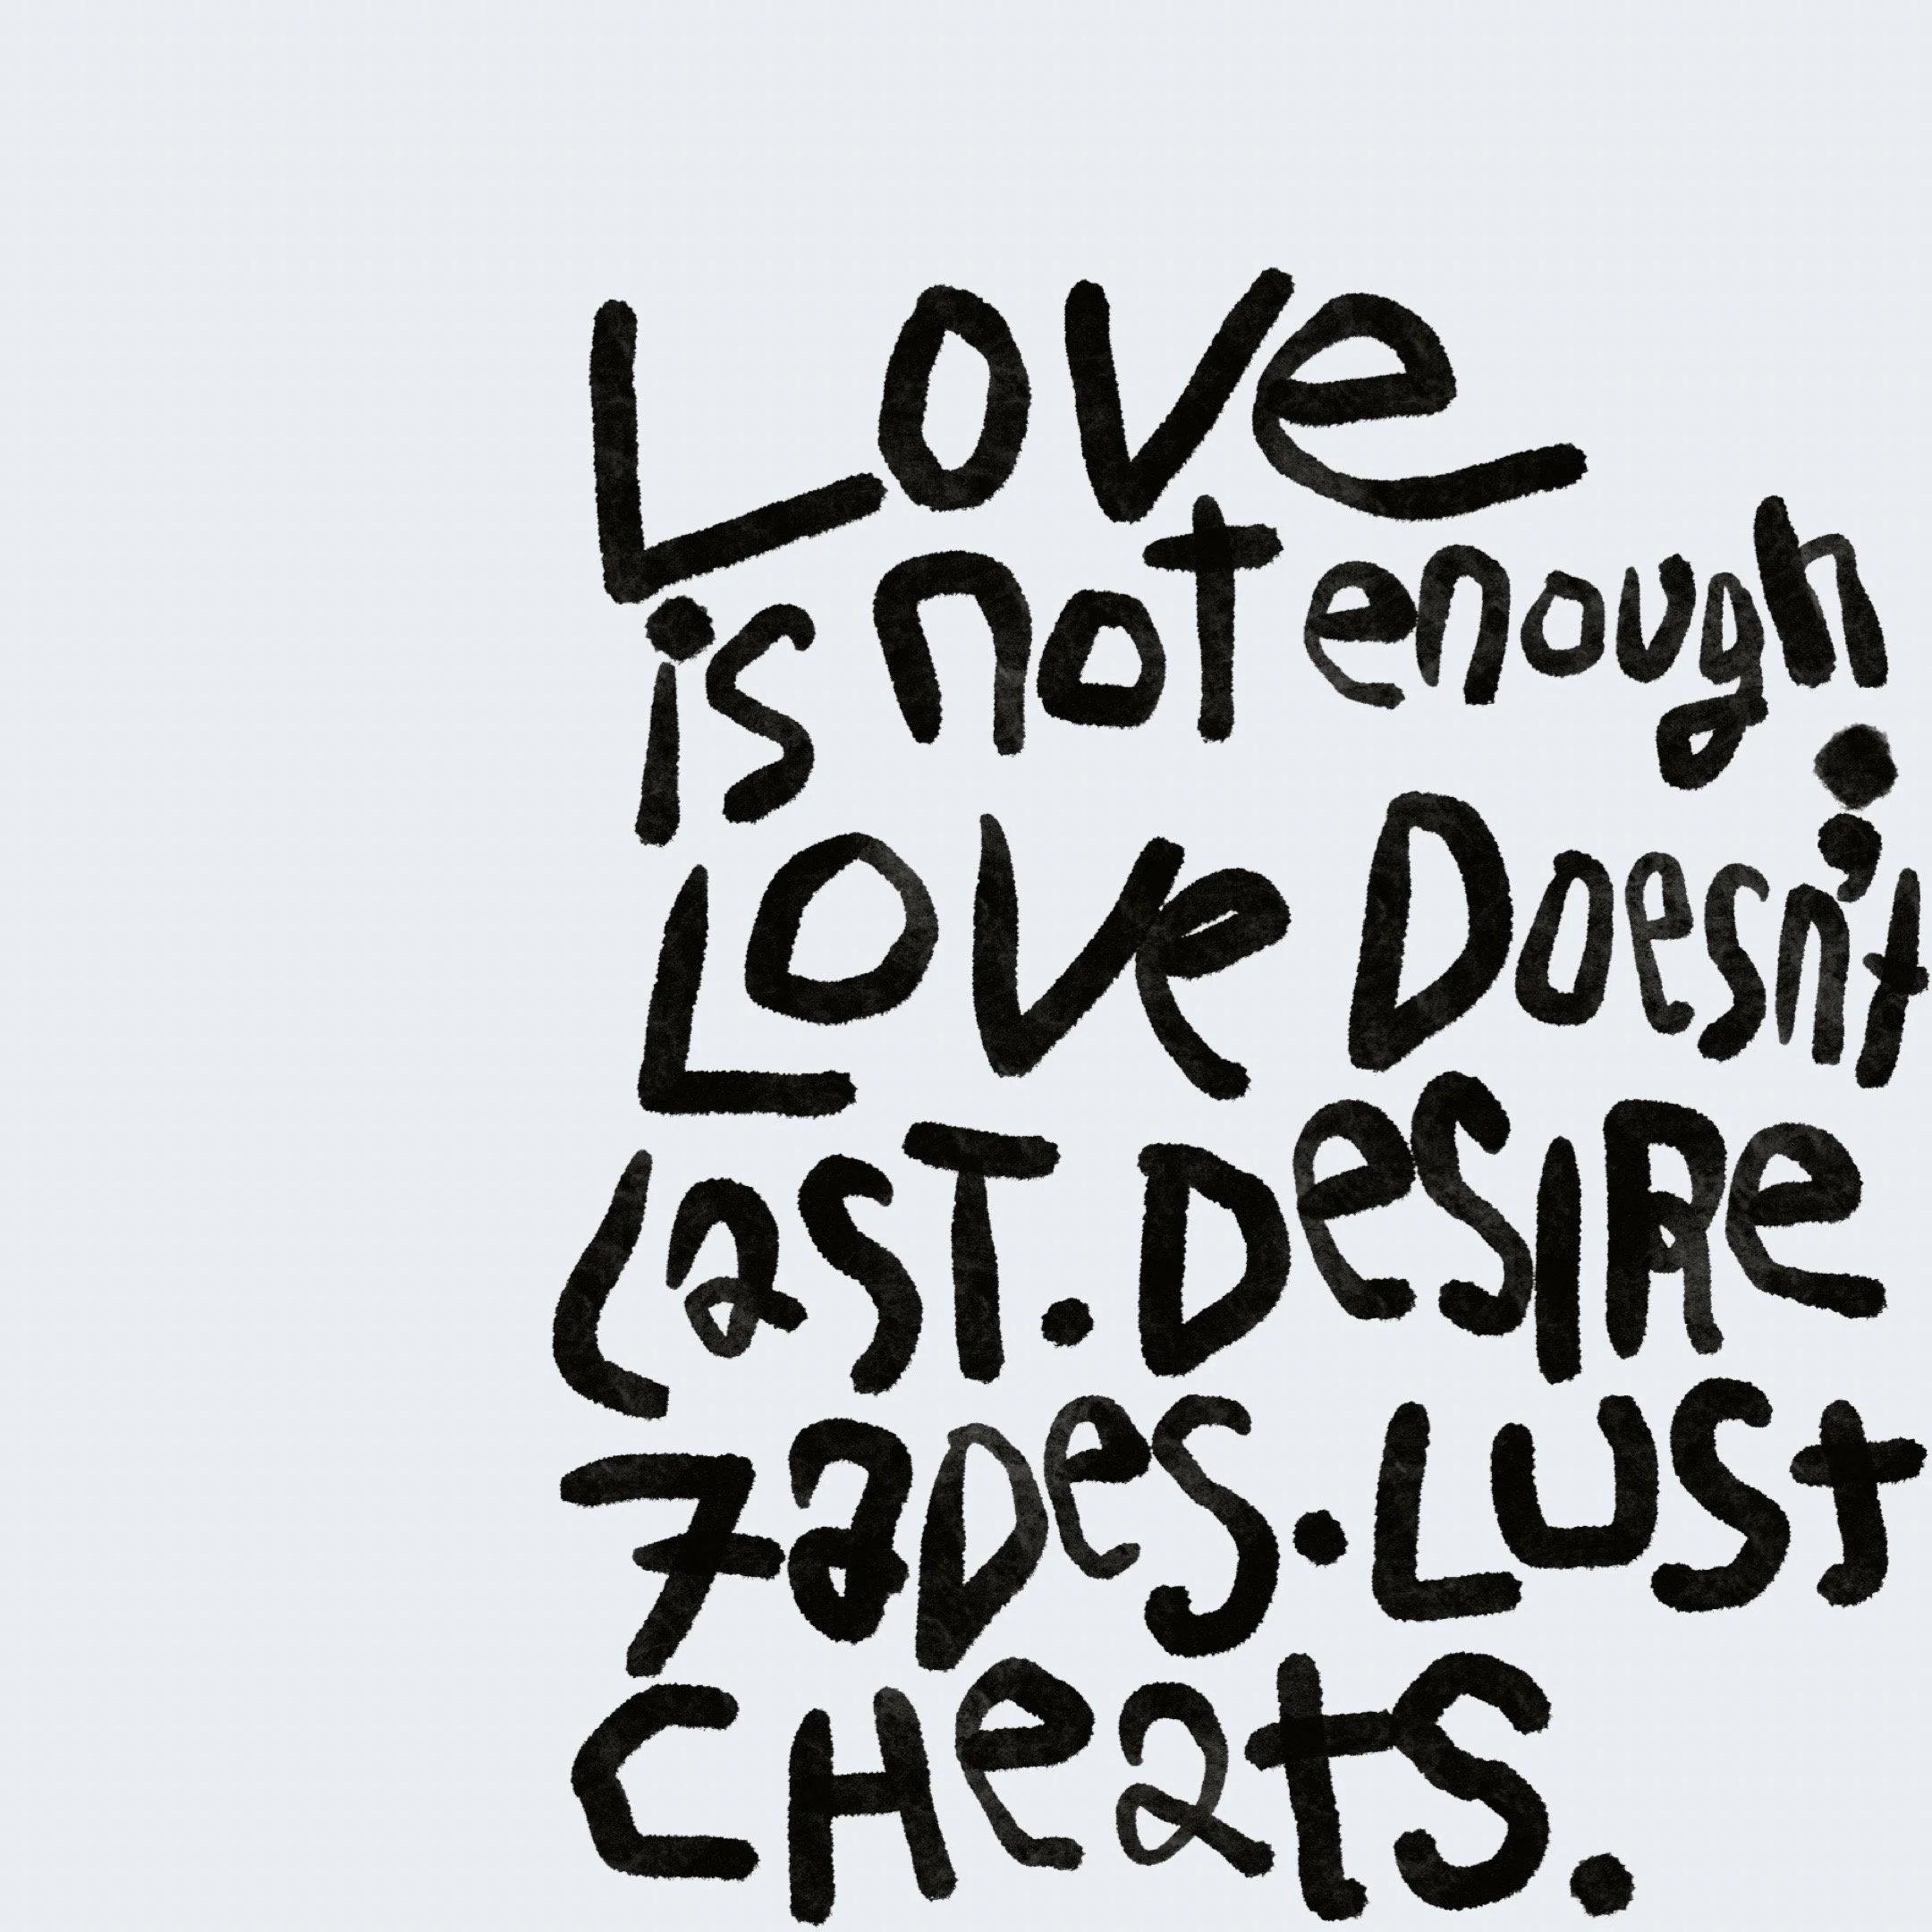 Love
is not enough.
Love Doesn't
Last. DesIRe
FaDes. Lust
CHeats.